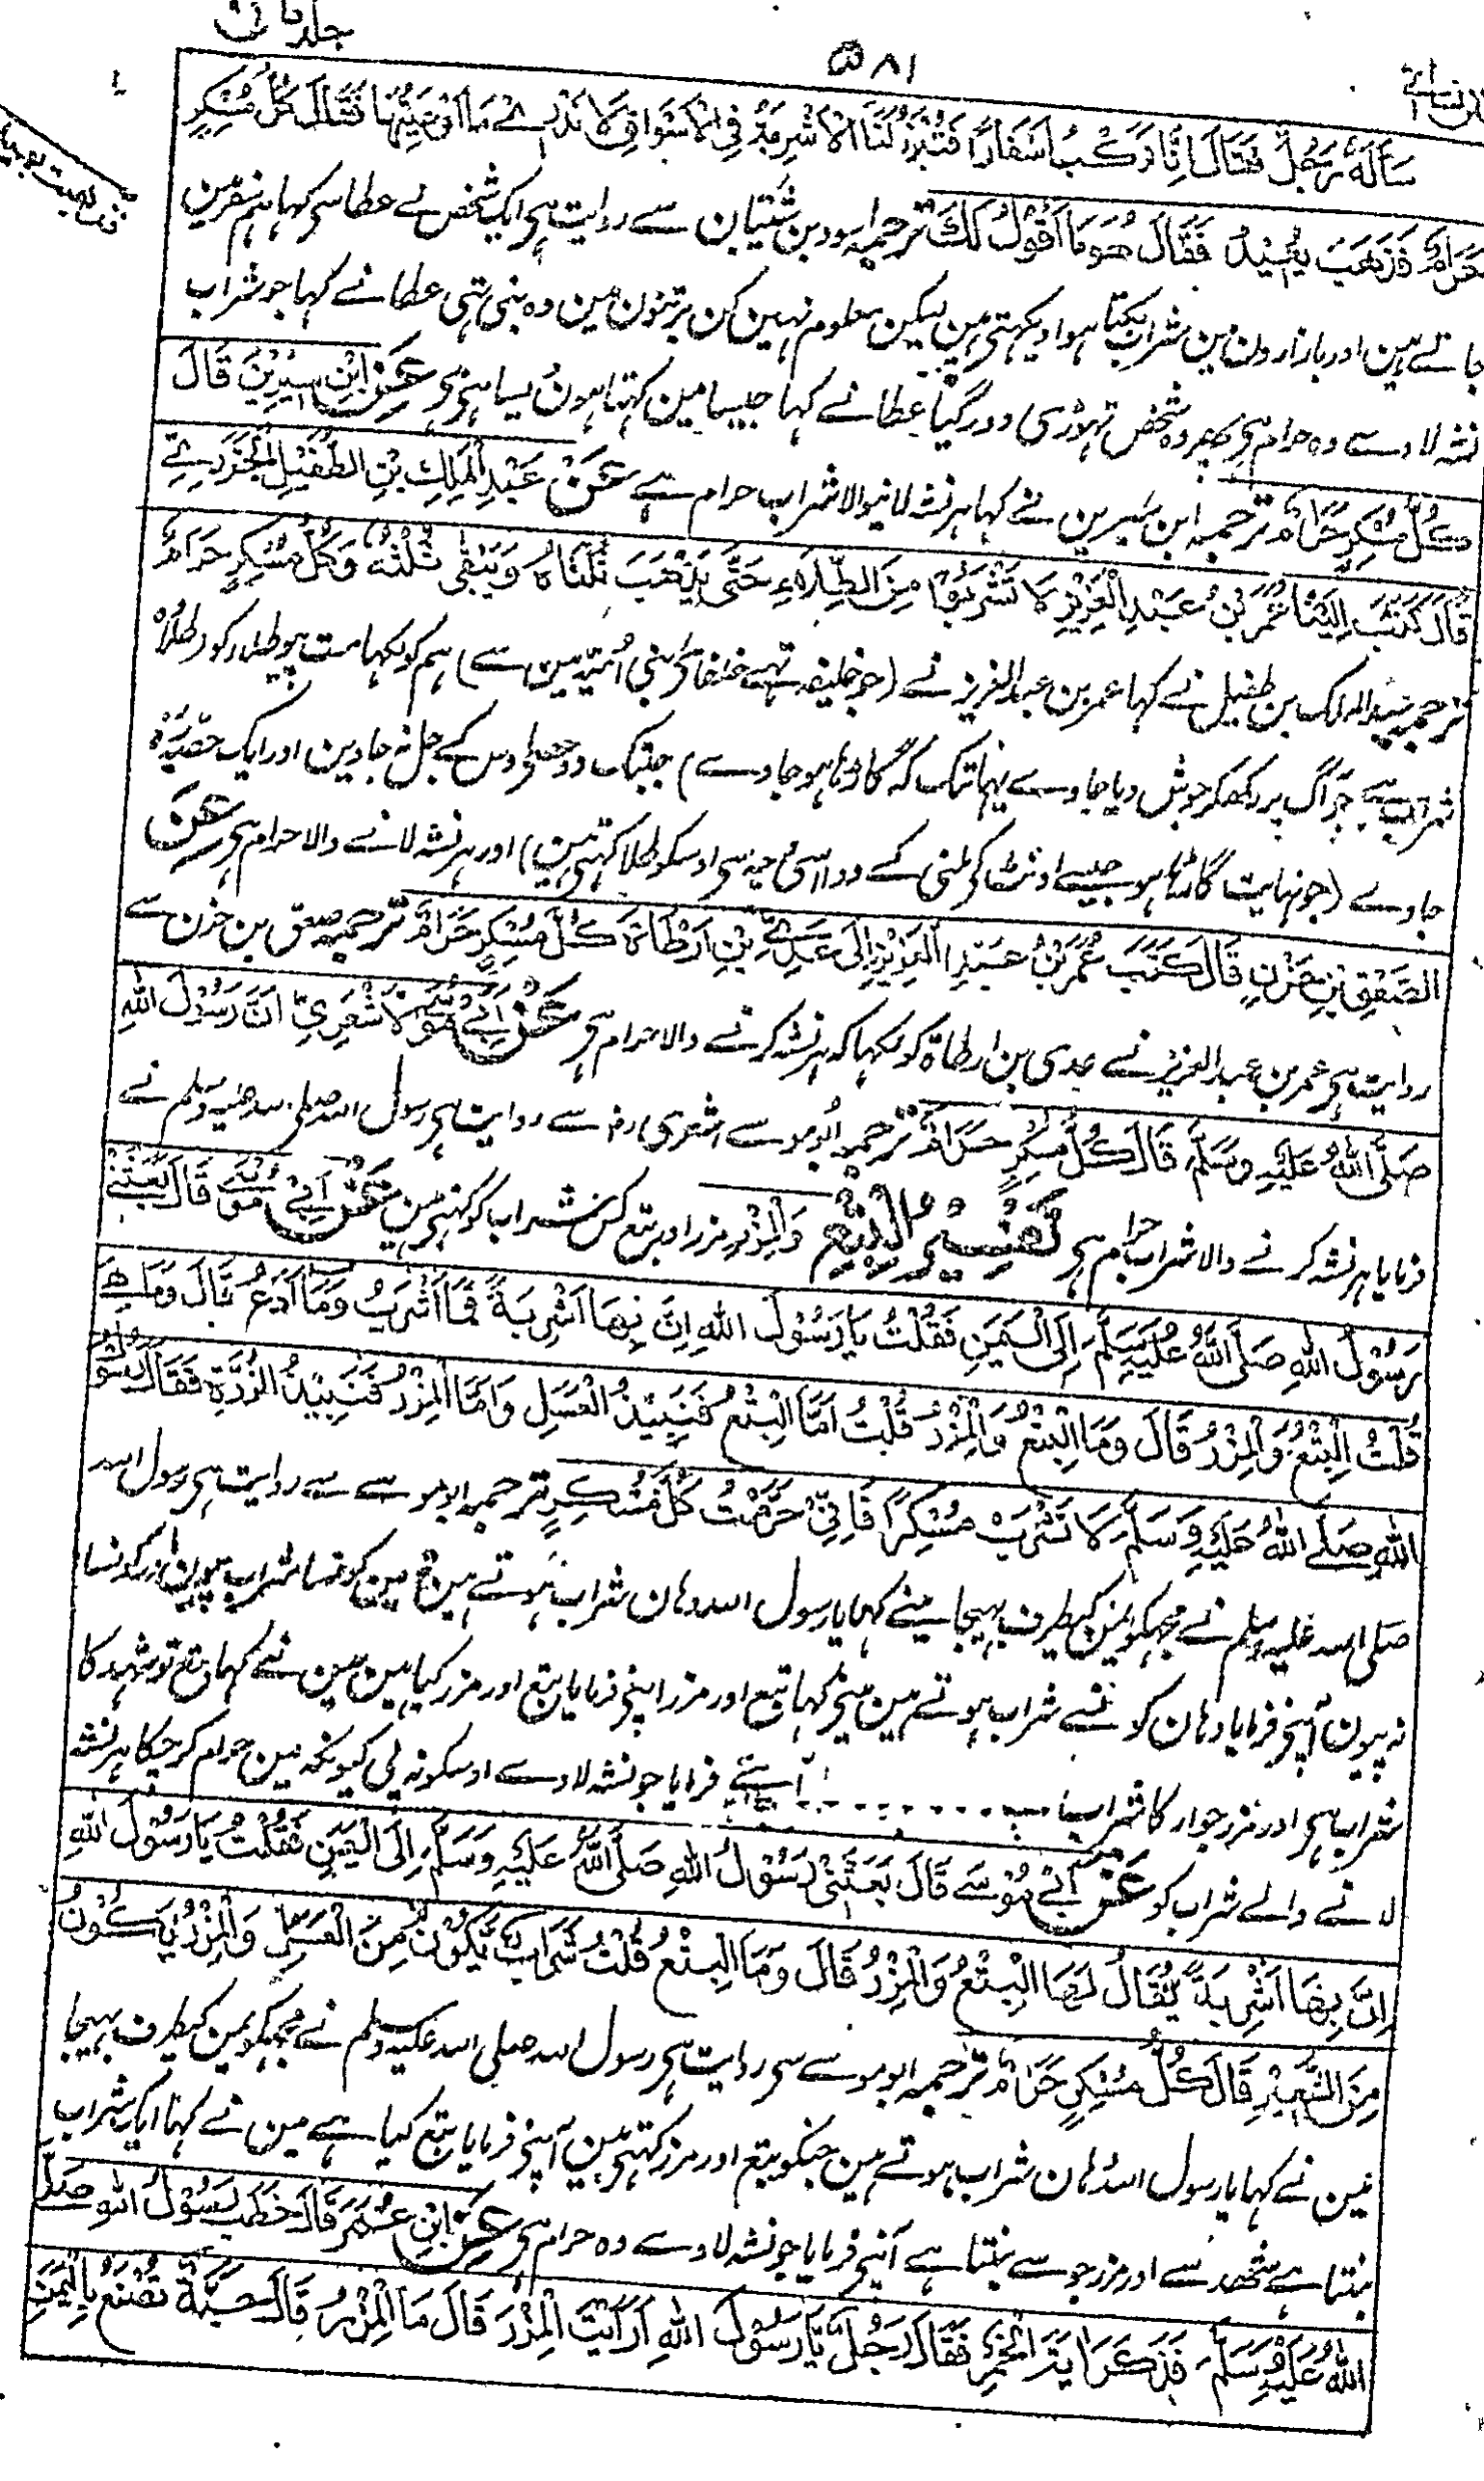 جلد ثانی
۵۸۱
سَأَلَهٗ رَجُلٌ فَقَالَ اِنَّا نَرْكَبُ اَسْفَارًا فَتُبْرَزُ لَنَا الْاَشْرِبَةُ فِی الْاَسْوَاقِ لَا نَدْرِیْ مَا اَوْعِیَتُهَا فَقَالَ كُلُّ مُسْكِرٍ
حَرَامٌ فَذَهَبَ یُعِیْدُ فَقَالَ هُوَ مَا اَقُوْلُ لَكَ ترجمہ اسود بن شیبان سے روایت ہی ایک شخص نے عطا سی کہا ہم سفر مین
جاتے ہین اور بازارون مین شراب بکتا ہوا دیکھتی ہین لیکن معلوم نہین کن برتنون مین وہ بنی تہی عطا نے کہا جو شراب
نشہ لاوے وہ حرام ہی پھر وہ شخص تہوڑی دور گیا عطا نے کہا جیسا مین کہتا ہون یسا ہی ہی عَنِ ابْنِ سِیْرِیْنَ قَالَ
كُلُّ مُسْكِرٍ حَرَامٌ ترجمہ ابن سیرین نے کہا ہر نشہ لانیوالا شراب حرام ہے عَنْ عَبْدِ الْمَلِكِ بْنِ الطُّفَیْلِ الْجَزَرِیِّ
قَالَ كَتَبَ اِلَیْنَا عُمَرُ بْنُ عَبْدِ الْعَزِیْزِ لَا تَشْرَبُوْا مِنَ الطِّلَاءِ حَتّٰی یَذْهَبَ ثُلُثَاهُ وَیَبْقٰی ثُلُثُهٗ وَكُلُّ مُسْكِرٍ حَرَامٌ
ترجمہ عبدالملک بن طفیل نے کہا عمر بن عبدالعزیز نے (جو خلیفہ تہے خلفا بنی امیہ مین سے) ہم کو لکھا مت پیو طلا کو (طلا وہ
شراب ہے جو آگ پر رکھکر جوش دیا جاوے یہانتک کہ گاڑھا ہو جاوے) جبتک دو حصی اوس کے جل نہ جاوین اور ایک حصہ رہ
جاوے (جو نہایت گاڑھا ہو جیسے اونٹ کو ملنی کے دوا اسی وجہ سی اوسکو طلا کہتی ہین) اور ہر نشہ لانے والا حرام ہی عَنِ
الصَّعْقِ بْنِ حَزْنٍ قَالَ كَتَبَ عُمَرُ بْنُ عَبْدِ الْعَزِیْزِ اِلٰی عَدِیِّ بْنِ اَرْطَاةَ كُلُّ مُسْكِرٍ حَرَامٌ ترجمہ صعق بن حزن سے
روایت ہی عمر بن عبدالعزیز نے عدی بن ارطاة کو لکھا کہ ہر نشہ کرنے والا حرام ہی عَنْ اَبِیْ مُوْسَی الْاَشْعَرِیِّ اَنَّ رَسُوْلَ اللّٰهِ
صَلَّی اللّٰهُ عَلَیْهِ وَسَلَّمَ قَالَ كُلُّ مُسْكِرٍ حَرَامٌ ترجمہ ابو موسے اشعری رض سے روایت ہی رسول اللہ صلی اللہ علیہ وسلم نے
فرمایا ہر نشہ کرنے والا شراب حرام ہی تَفْسِیْرُ الْبِتْعِ وَالْمِزْرِ مزر اور بتع کس شراب کو کہتی ہین عَنْ اَبِیْ مُوْسٰی قَالَ بَعَثَنِیْ
رَسُوْلُ اللّٰهِ صَلَّی اللّٰهُ عَلَیْهِ وَسَلَّمَ اِلَی الْیَمَنِ فَقُلْتُ یَا رَسُوْلَ اللّٰهِ اِنَّ بِهَا اَشْرِبَةً فَمَا اَشْرَبُ وَمَا اَدَعُ قَالَ وَمَا هِیَ
قُلْتُ الْبِتْعُ وَالْمِزْرُ قَالَ وَمَا الْبِتْعُ وَالْمِزْرُ قُلْتُ اَمَّا الْبِتْعُ فَنَبِیْذُ الْعَسَلِ وَاَمَّا الْمِزْرُ فَنَبِیْذُ الذُّرَةِ فَقَالَ رَسُوْلُ
اللّٰهِ صَلَّی اللّٰهُ عَلَیْهِ وَسَلَّمَ لَا تَشْرَبْ مُسْكِرًا فَاِنِّیْ حَرَّمْتُ كُلَّ مُسْكِرٍ ترجمہ ابو موسے سے روایت ہی رسول اللہ
صلی اللہ علیہ وسلم نے مجہکو یمن کیطرف بہیجا مینے کہا یا رسول اللہ وہان شراب ہوتے ہین تو مین کونسا شراب پیون اور کونسا
نہ پیون آپنی فرمایا وہان کونسے شراب ہوتے ہین مینی کہا بتع اور مزر آپنی فرمایا بتع اور مزر کیا ہین مین نے کہا بتع تو شہد کا
شراب ہی اور مزر جوار کا شراب ہے آپنے فرمایا جو نشہ لاوے اوسکو نہ پی کیونکہ مین حرام کر چکا ہر نشہ
لانے والے شراب کو عَنْ اَبِیْ مُوْسٰی قَالَ بَعَثَنِیْ رَسُوْلُ اللّٰهِ صَلَّی اللّٰهُ عَلَیْهِ وَسَلَّمَ اِلَی الْیَمَنِ فَقُلْتُ یَا رَسُوْلَ اللّٰهِ
اِنَّ بِهَا اَشْرِبَةً یُقَالُ لَهَا الْبِتْعُ وَالْمِزْرُ قَالَ وَمَا الْبِتْعُ قُلْتُ شَرَابٌ یَّكُوْنُ مِنَ الْعَسَلِ وَالْمِزْرُ یَكُوْنُ
مِنَ الشَّعِیْرِ قَالَ كُلُّ مُسْكِرٍ حَرَامٌ ترجمہ ابو موسے سی روایت ہی رسول اللہ صلی اللہ علیہ وسلم نے مجہکو یمن کیطرف بہیجا
مین نے کہا یا رسول اللہ وہان شراب ہوتے ہین جنکو بتع اور مزر کہتی ہین آپنی فرمایا بتع کیا ہے مین نے کہا ایک شراب
بنتا ہے شہد سے اور مزر جو سے بنتا ہے آپنی فرمایا جو نشہ لاوے وہ حرام ہی عَنِ ابْنِ عُمَرَ قَالَ خَطَبَ رَسُوْلُ اللّٰهِ صَلَّی
اللّٰهُ عَلَیْهِ وَسَلَّمَ فَذَكَرَ اٰیَةَ الْخَمْرِ فَقَالَ رَجُلٌ یَّا رَسُوْلَ اللّٰهِ اَرَاَیْتَ الْمِزْرَ قَالَ مَا الْمِزْرُ قَالَ حَبَّةٌ تُصْنَعُ بِالْیَمَنِ